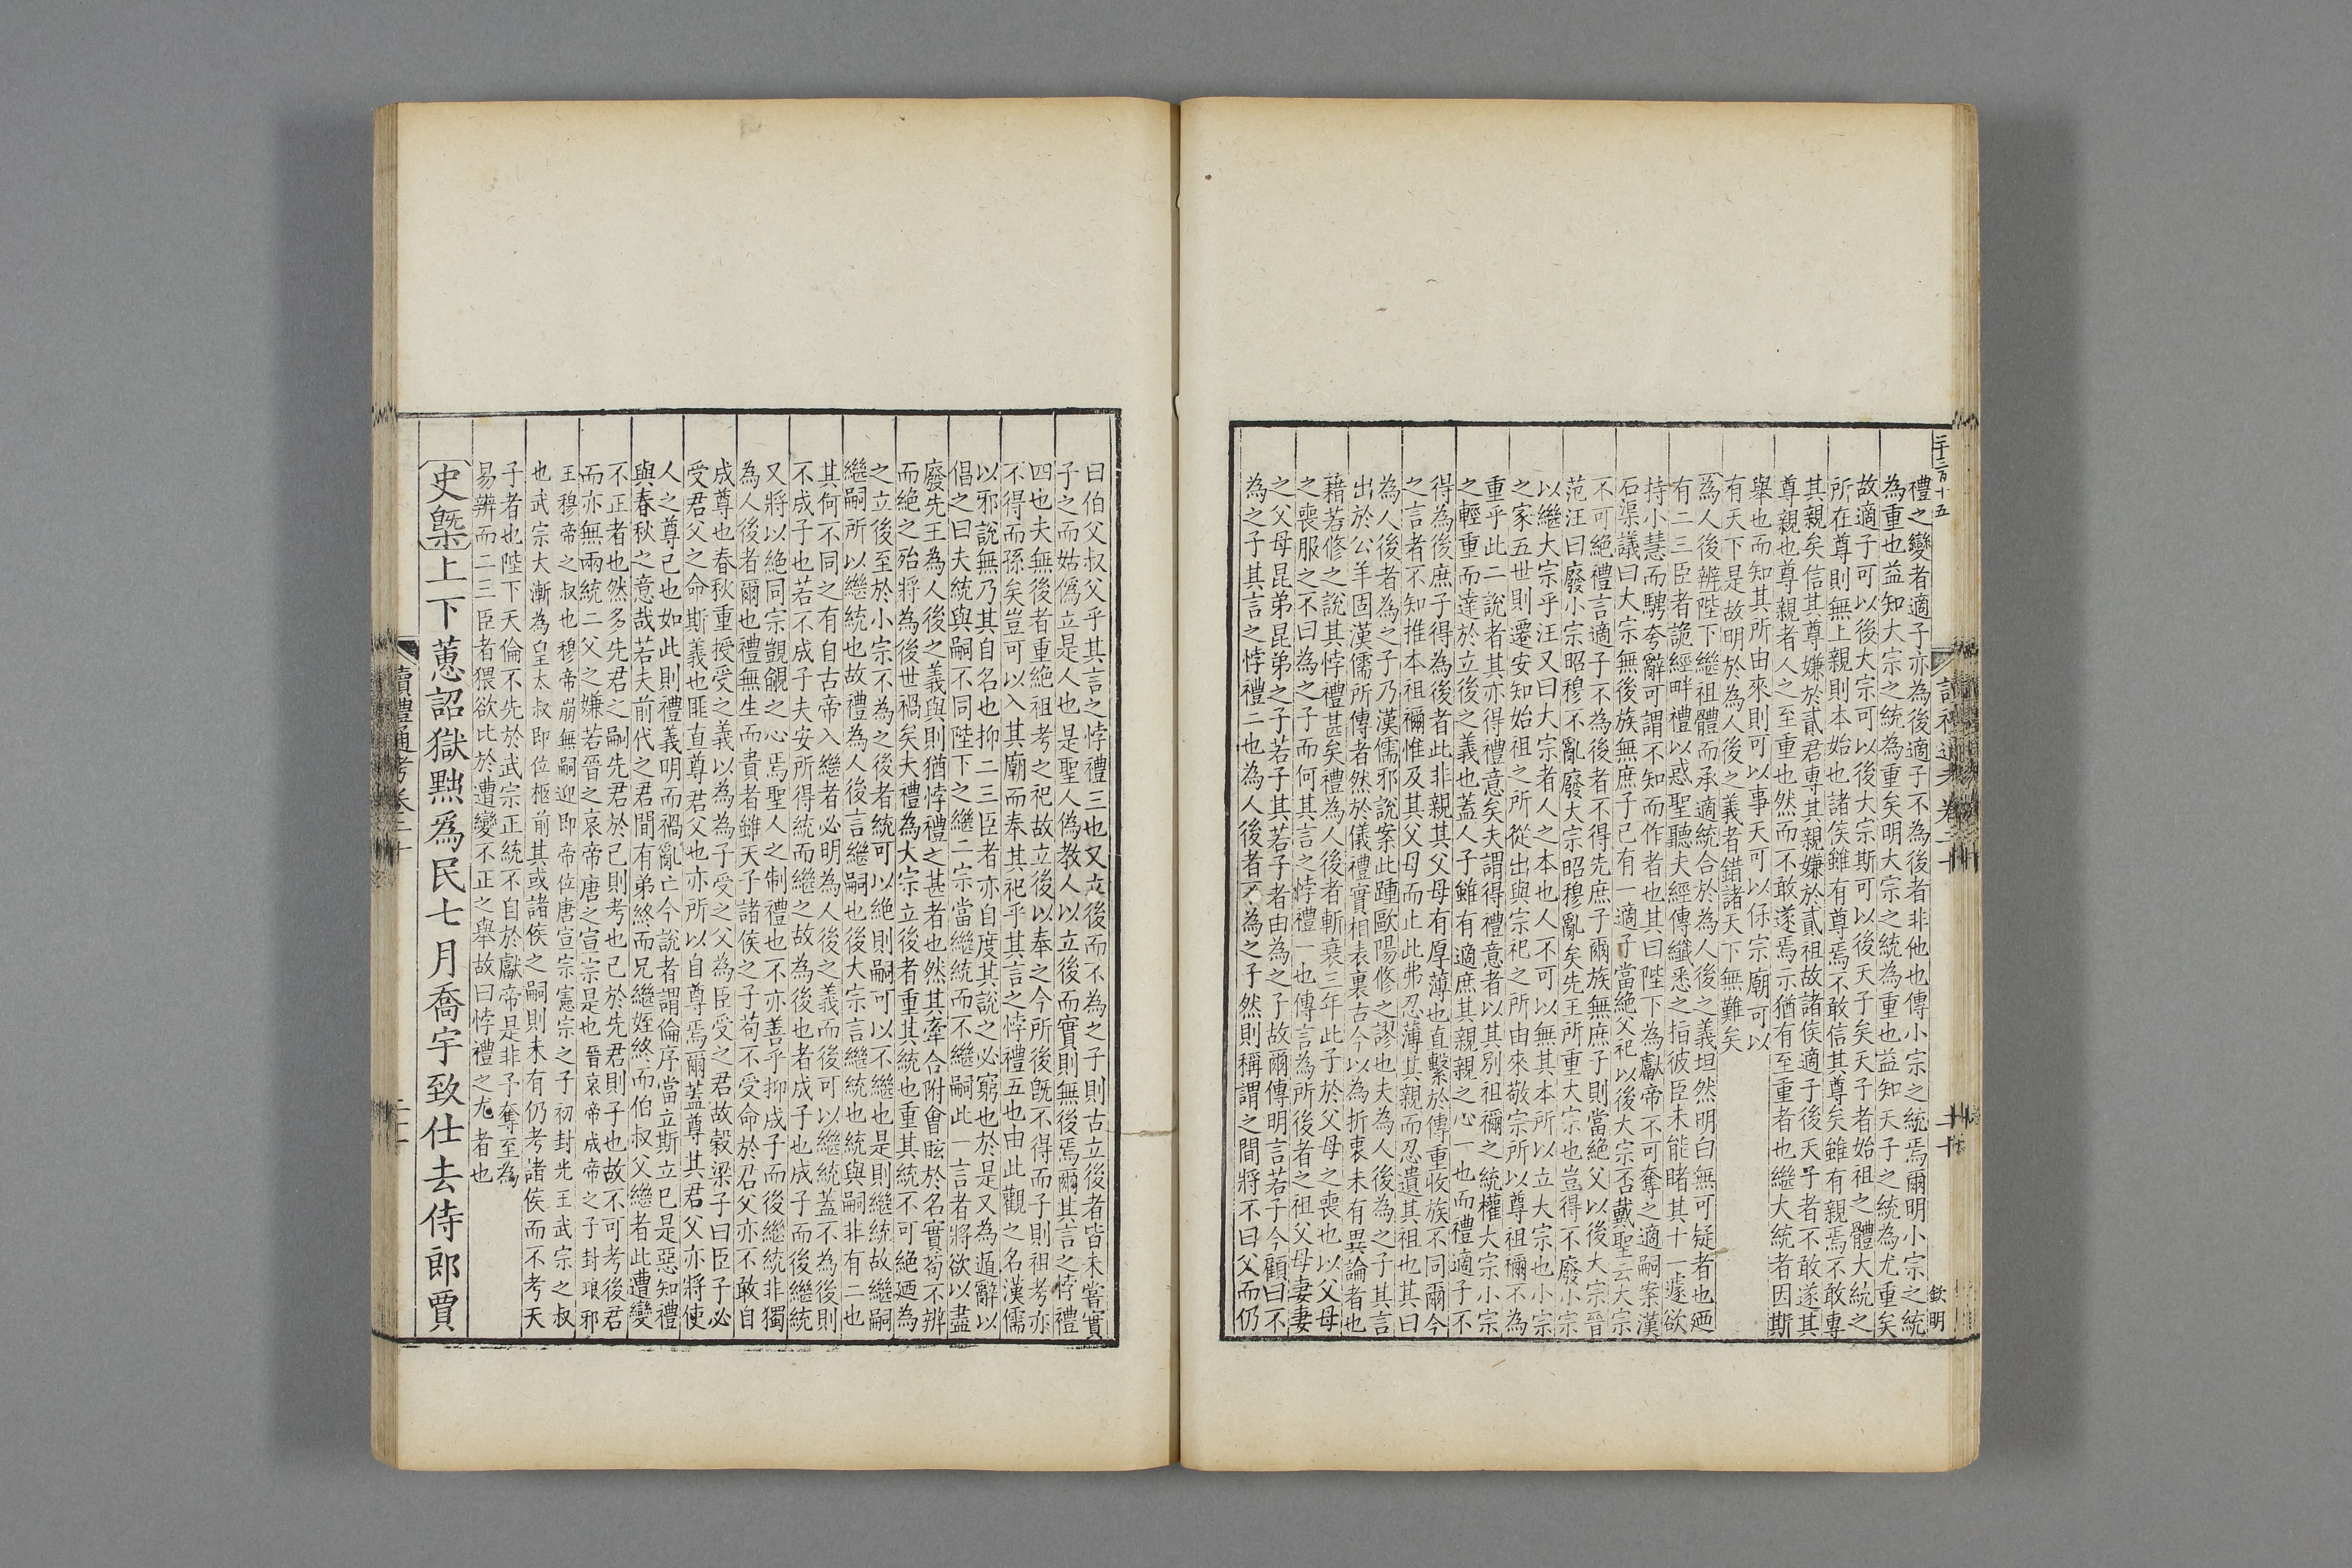 禮之變者適子亦為後適子不為後者非他也傳小宗之統焉爾明小宗之統
為重也益知大宗之統為重矣明大宗之統為重也益知天子之統為尤重矣
故適子可以後大宗可以後大宗斯可以後天子矣天子者始祖之體大統之
所在尊則無上親則本始也諸侯雖有尊焉不敢信其尊矣雖有親焉不敢專
其親矣信其尊嫌於貳君專其親嫌於貳祖故諸侯適子後天子者不敢遂其
尊親也尊親者人之至重也然而不敢遂焉示猶有至重者也繼大統者因斯
舉也而知其所由來則可以事天可以保宗廟可以
有天下是故明於為人後之義者錯諸天下無難矣
為人後辨陛下繼祖體而承適統合於為人後之義坦然明白無可疑者也廼
有二三臣者詭經畔禮以惑聖聽夫經傳纖悉之指彼臣未能睹其十一遽欲
持小慧而騁夸辭可謂不知而作者也其曰陛下為獻帝不可奪之適嗣案漢
石渠議曰大宗無後族無庶子已有一適子當絕父祀以後大宗否戴聖云大宗
不可絕禮言適子不為後者不得先庶子爾族無庶子則當絕父以後大宗晉
范汪曰廢小宗昭穆不亂廢大宗昭穆亂矣先王所重大宗也豈得不廢小宗
以繼大宗乎汪又曰大宗者人之本也人不可以無其本所以立大宗也小宗
之家五世則遷安知始祖之所從出與宗祀之所由來敬宗所以尊祖禰不為
重乎此二說者其亦得禮意矣夫謂得禮意者以其別祖禰之統權大宗小宗
之輕重而達於立後之義也蓋人子雖有適庶其親親之心一也而禮適子不
得為後庶子得為後者此非親其父母有厚薄也直繫於傳重收族不同爾今
之言者不知推本祖禰惟及其父母而止此弗忍薄其親而忍遺其祖也其曰
為人後者為之子乃漢儒邪說案此踵歐陽修之謬也夫為人後為之子其言
出於公羊固漢儒所傳者然於儀禮實相表裏古今以為折衷未有異論者也
藉若修之說其悖禮甚矣禮為人後者斬衰三年此子於父母之喪也以父母
之喪服之不曰為之子而何其言之悖禮一也傳言為所後者之祖父母妻妻
之父母昆弟昆弟之子若子其若子者由為之子故爾傳明言若子今顧曰不
為之子其言之悖禮二也為人後者不為之子然則稱謂之間將不曰父而仍
曰伯父叔父乎其言之悖禮三也又立後而不為之子則古立後者皆未嘗實
子之而姑偽立是人也是聖人偽教人以立後而實則無後焉爾其言之悖禮
四也夫無後者重絕祖考之祀故立後以奉之今所後既不得而子則祖考亦
不得而孫矣豈可以入其廟而奉其祀乎其言之悖禮五也由此觀之名漢儒
以邪說無乃其自名也抑二三臣者亦自度其說之必窮也於是又為遁辭以
倡之曰夫統與嗣不同陛下之繼二宗當繼統而不繼嗣此一言者將欲以盡
廢先王為人後之義與則猶悖禮之甚者也然其牽合附會眩於名實苟不辨
而絕之殆將為後世禍矣夫禮為大宗立後者重其統也重其統不可絕廼為
之立後至於小宗不為之後者統可以絕則嗣可以不繼也是則繼統故繼嗣
繼嗣所以繼統也故禮為人後言繼嗣也後大宗言繼統也統與嗣非有二也
其何不同之有自古帝入繼者必明為人後之義而後可以繼統蓋不為後則
不成子也若不成子夫安所得統而繼之故為後也者成子也成子而後繼統
又將以絕同宗覬覦之心焉聖人之制禮也不亦善乎抑成子而後繼統非獨
為人後者爾也禮無生而貴者雖天子諸侯之子苟不受命於君父亦不敢自
成尊也春秋重授受之義以為為子受之父為臣受之君故穀梁子曰臣子必
受君父之命斯義也匪直尊君父也亦所以自尊焉爾蓋尊其君父亦將使
人之尊己也如此則禮義明而禍亂亡今說者謂倫序當立斯立已是惡知禮
與春秋之意哉若夫前代之君間有弟終而兄繼姪終而伯叔父繼者此遭變
不正者也然多先君之嗣先君於己則考也己於先君則子也故不可考後君
而亦無兩統二父之嫌若晉之哀帝唐之宣宗是也晉哀帝成帝之子封琅邪
王穆帝之叔也穆帝崩無嗣迎即帝位唐宣宗憲宗之子初封光王武宗之叔
也武宗大漸為皇太叔即位柩前其或諸侯之嗣則未有仍考諸侯而不考天
子者也陛下天倫不先於武宗正統不自於獻帝是非予奪至為
易辨而二三臣者猥欲比於遭變不正之舉故曰悖禮之尤者也
史槩上下蕙詔獄黜為民七月喬宇致仕去侍郎賈
讀禮通考卷二十